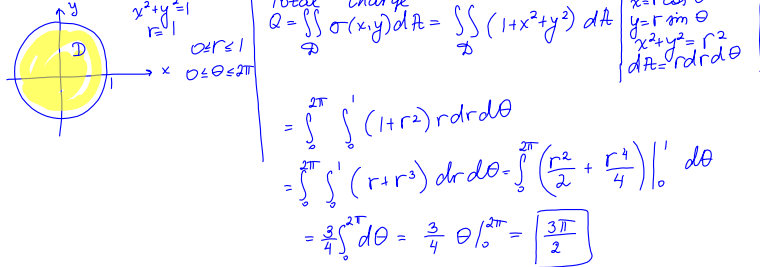 y
x²+y²=1
r=1
D
0≤r≤1
0≤θ≤2π
x
1
Total Charge
Q = ∬_D σ(x,y)dA = ∬_D (1+x²+y²) dA
x=r cos θ
y=r sin θ
x²+y²=r²
dA=rdrdθ
= ∫₀^2π ∫₀^1 (1+r²) r dr dθ
= ∫₀^2π ∫₀^1 (r+r³) dr dθ = ∫₀^2π (r²/2 + r⁴/4) |₀^1 dθ
= 3/4 ∫₀^2π dθ = 3/4 θ |₀^2π = 3π/2